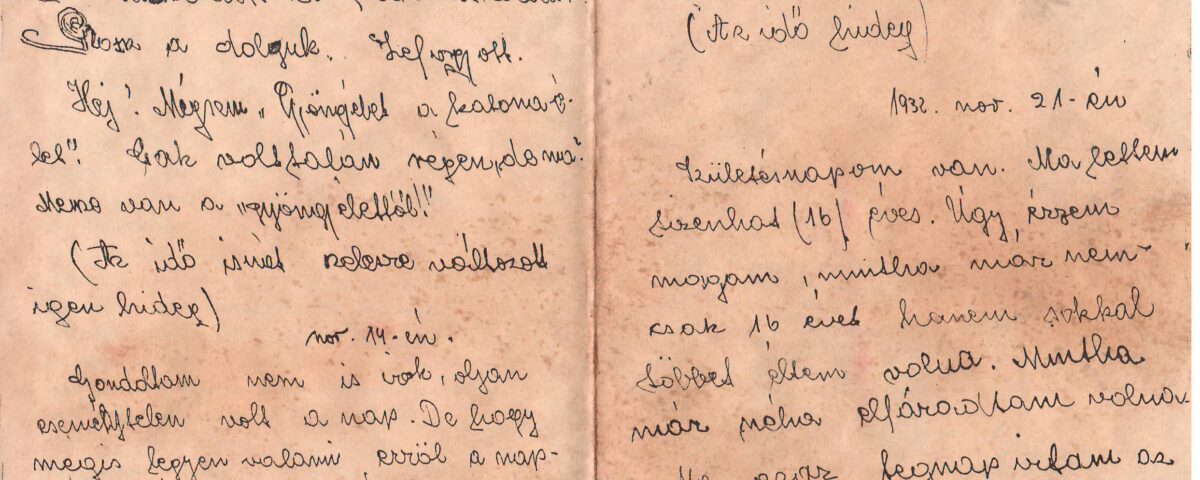 Rossz a dolguk.
Hej! Mégsem "Gyöngélet a katona-é-
let". Csak volt talán régen, de ma?
Messze van a "gyöngélettől!"
(Az idő ismét szelesre változott
igen hideg)
nov. 14-én.
Gondoltam nem is írok, olyan
eseménytelen volt a nap. De hogy
mégis legyen valami erről a nap-
(Az idő hideg)
1932. nov. 21-én
Születésnapom van. Ma lettem
tizenhat (16) éves. Úgy érzem
magam, mintha már nem-
csak 16 évet hanem sokkal
többet éltem volna. Mintha
már néha elfáradtam volna.
tegnap írtam az